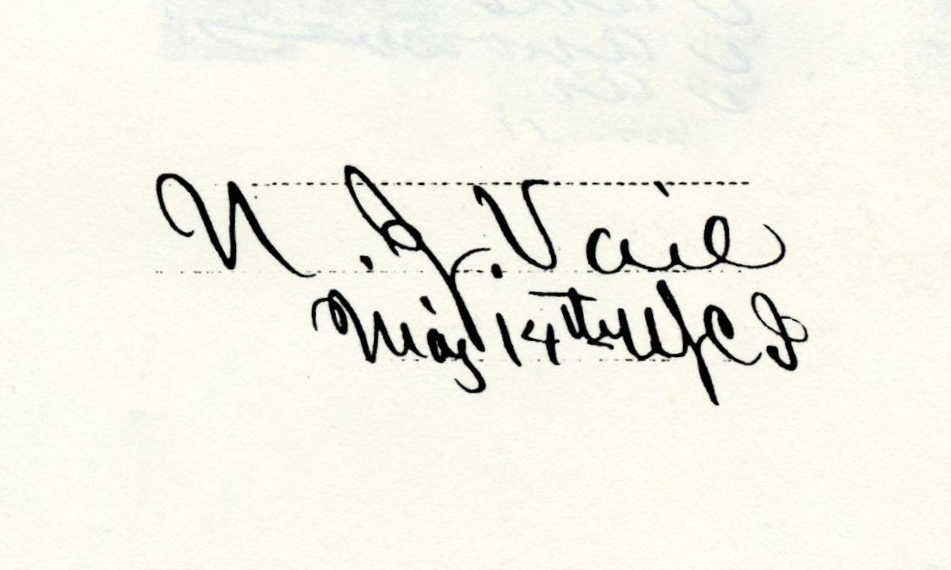 N. G. Vail
Maj 14th U S C I